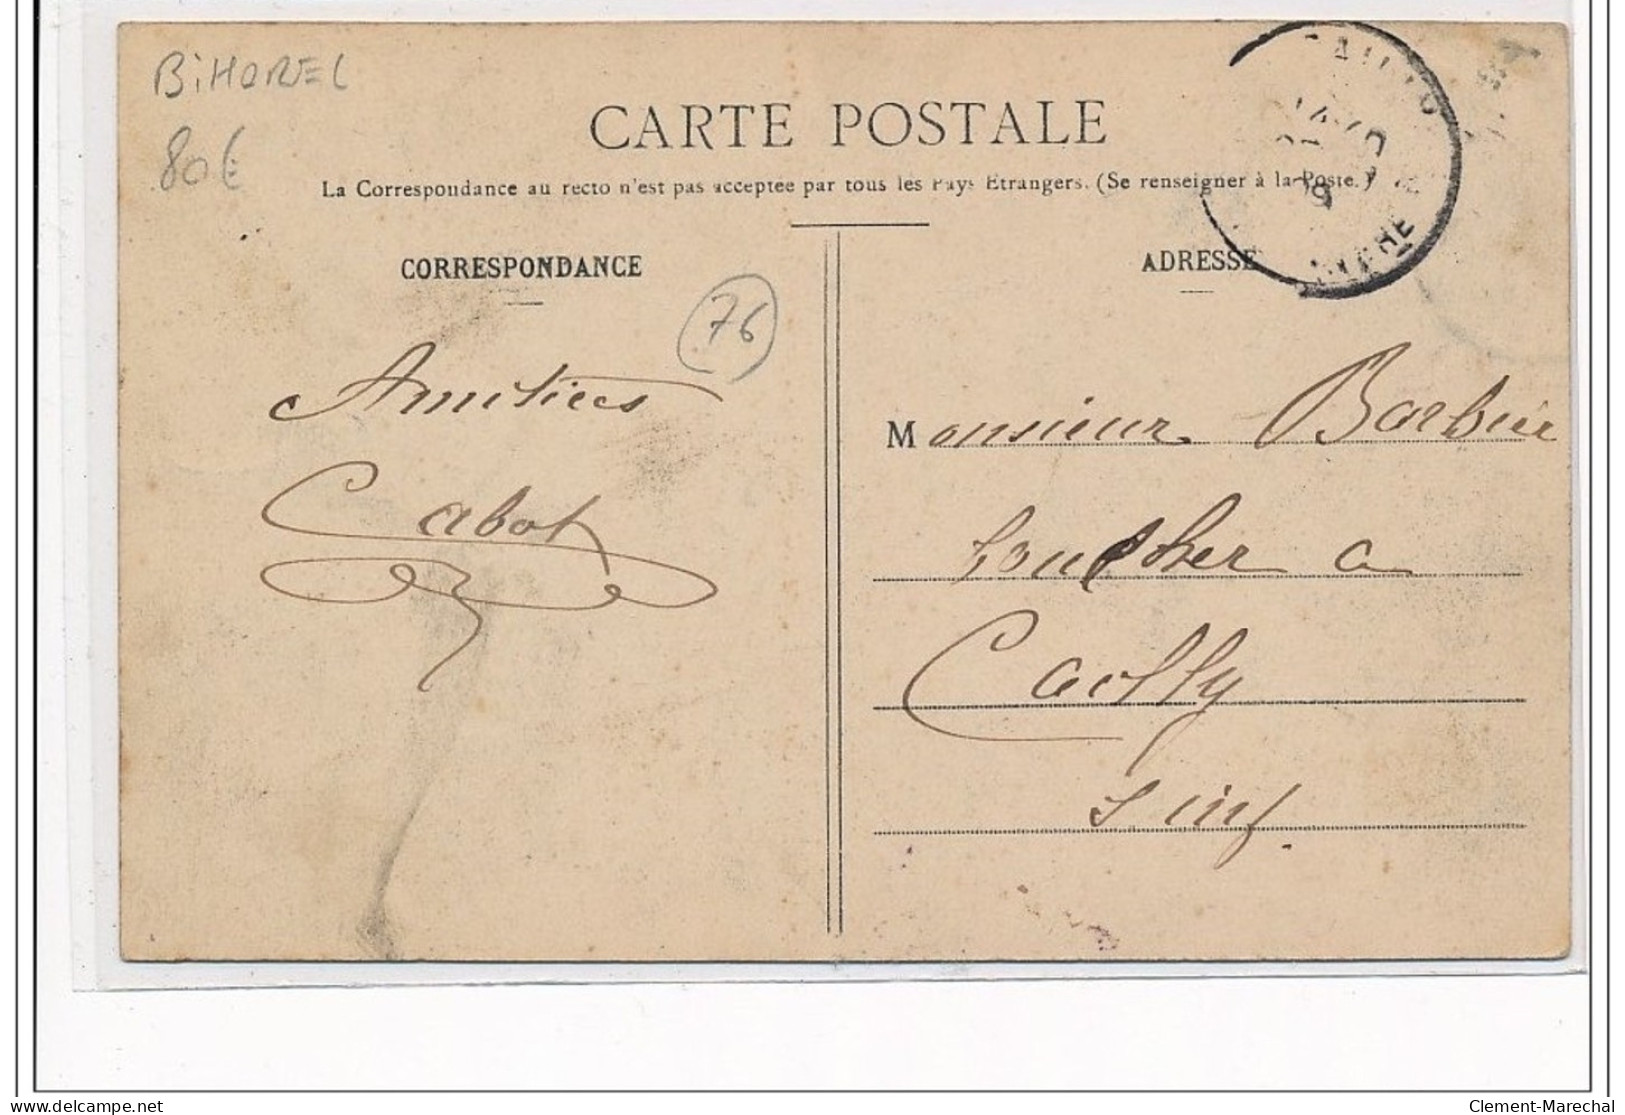 BiHOREL
80€
CARTE POSTALE
La Correspondance au recto n'est pas acceptée par tous les Pays Etrangers. (Se renseigner à la Poste.)
CORRESPONDANCE
ADRESSE
76
Amitiées
Cabot
Monsieur Barbier
boucher a
Cailly
S inf.
Clement-Marechal